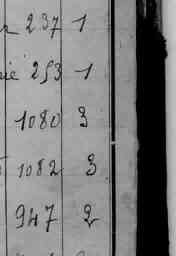 237 1
253 1
1080 3
1082 3
947 2